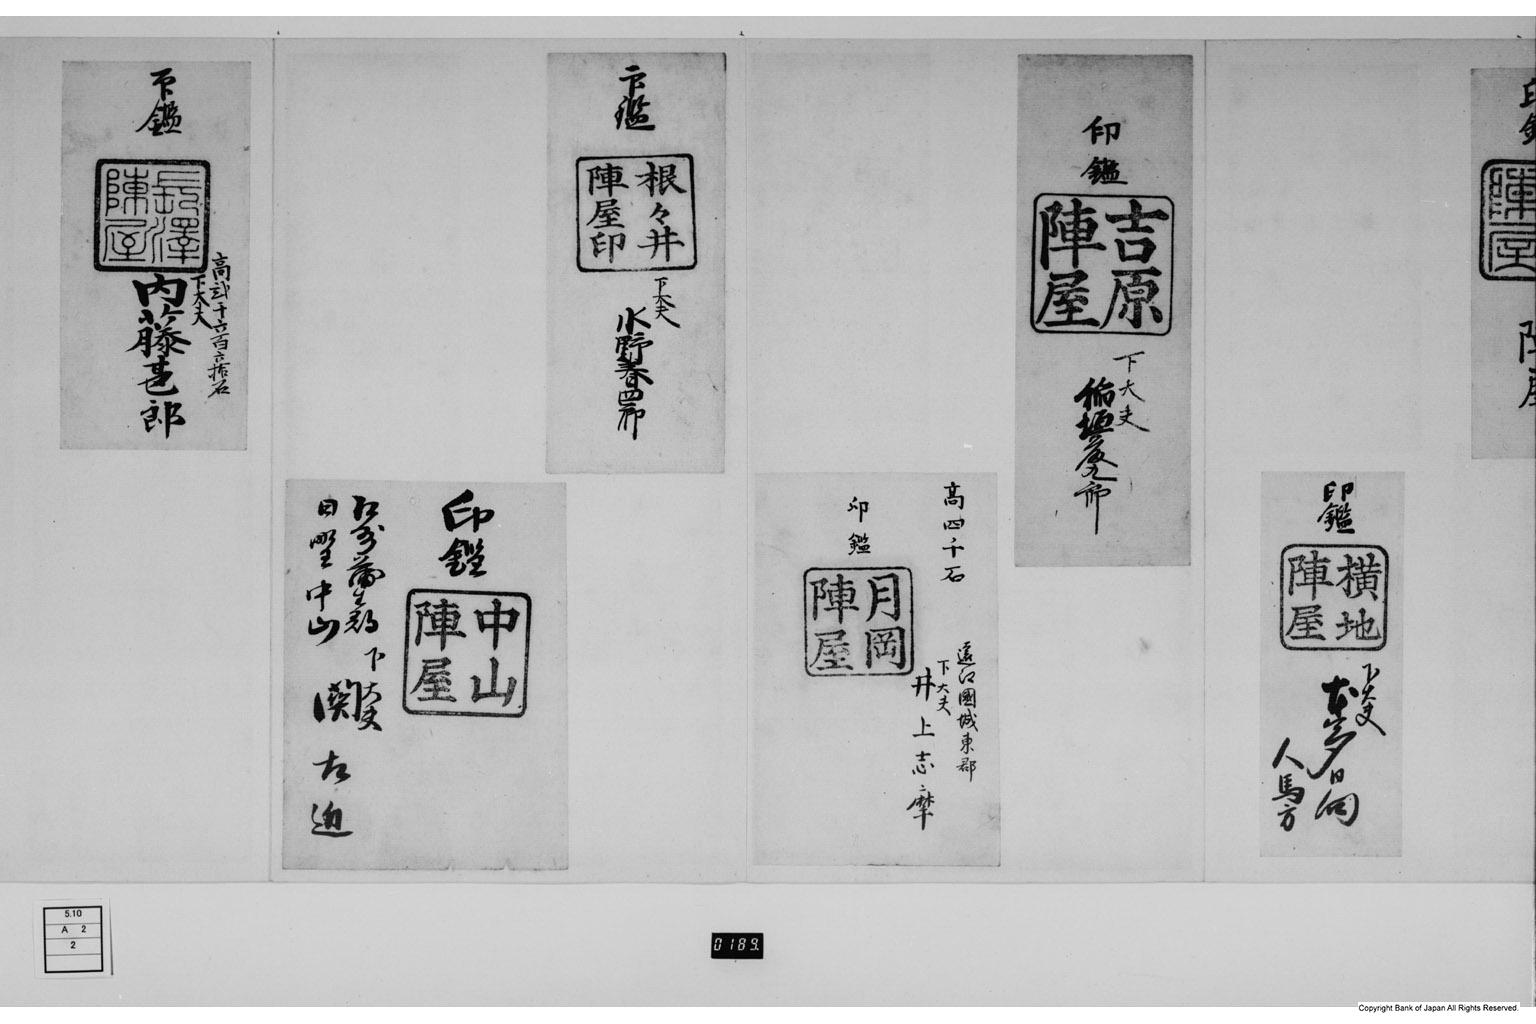 印鑑
陣屋
印鑑
横地
陣屋
下大夫
本多日向
人馬方
印鑑
吉原
陣屋
下大夫
稲垣
高四千石
印鑑
月岡
陣屋
遠江國城東郡
下大夫
井上志摩
印鑑
根々井
陣屋印
下大夫
水野春四郎
印鑑
中山
陣屋
江州蒲生郡
日野中山
下大夫
関左近
印鑑
長澤
陳屋
高弐千六百六拾石
下大夫
内藤甚郎
5.10
A 2
2
0189
Copyright Bank of Japan All Rights Reserved.